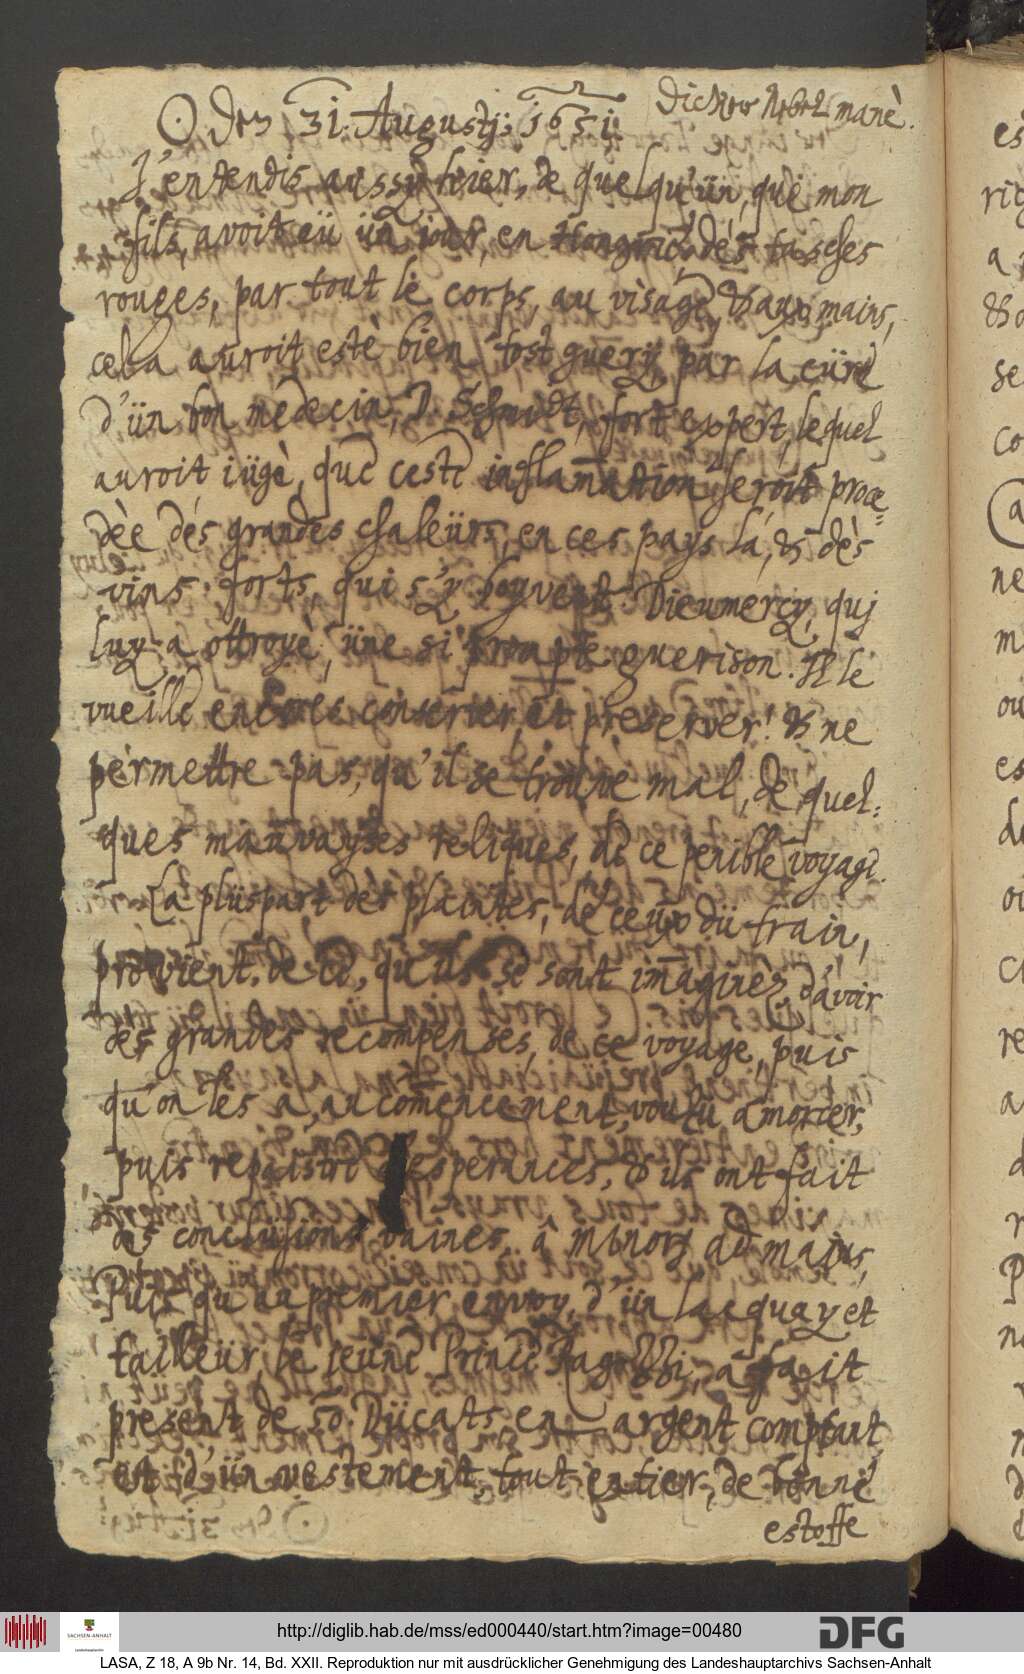 ☉ den 31. Augustj: 1651. Dicker Nebel manè.
J'entendis aussy hier, de quelqu'ün, que mon
fils, avoit eü ün jour, en Hongrie, des tasches
rouges, par tout le corps, au visage, & aux mains,
cela auroit estè bien tost guery, par la cüre
d'ün bon medecin, D. Schmidt, fort expert, lequel
auroit jügè, que ceste inflam̄ation seroit proce=
dèe dès grandes chaleürs, en ces pays là, & dès
vins forts, qui s'y boyvent. Dieumercy, quj
luy a ottroyè, üne si prompte guerison. Il le
vueille encores conserver, et preserver! & ne
permettre pas, qu'il se treuve mal, de quel=
ques mauvayses reliques, de ce penible voyage.
La plüspart des plaintes, de ceux dü train,
provient, de ce, qu'ils se sont imaginez d'avoir
des grandes recompenses, de ce voyage, puis
qu'on les a, au com̄encement, voulu amorcer,
puis repaistre d'esperances, & ils ont fait
des conclüsions vaines, â minorj ad majus,
Puis qu'au premier envoy, d'ün lacquay et
tailleür, le jeune Prince Ragozzi, a fait
present de 50 Dücats en argent comptant,
et d'ün vestement, tout entier, de bonne
estoffe
http://diglib.hab.de/mss/ed000440/start.htm?image=00480
SACHSEN-ANHALT
DFG
LASA, Z 18, A 9b Nr. 14, Bd. XXII. Reproduktion nur mit ausdrücklicher Genehmigung des Landeshauptarchivs Sachsen-Anhalt